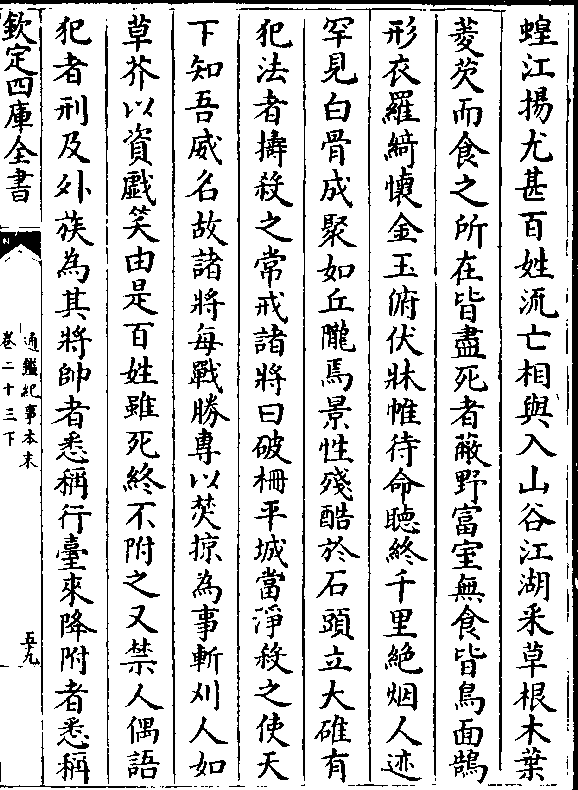 蝗江揚尤甚百姓流亡相與入山谷江湖采草根木葉
菱芡而食之所在皆盡死者蔽野富室無食皆鳥面鵠
形衣羅綺懷金玉俯伏牀帷待命聽終千里絶烟人迹
罕見白骨成聚如丘隴焉景性殘酷於石頭立大碓有
犯法者擣殺之常戒諸將曰破柵平城當淨殺之使天
下知吾威名故諸將每戰勝專以焚掠為事斬刈人如
草芥以資戲笑由是百姓雖死終不附之又禁人偶語
犯者刑及外族為其將帥者悉稱行臺來降附者悉稱
欽定四庫全書
通鑑紀事本末
卷二十三下
五九